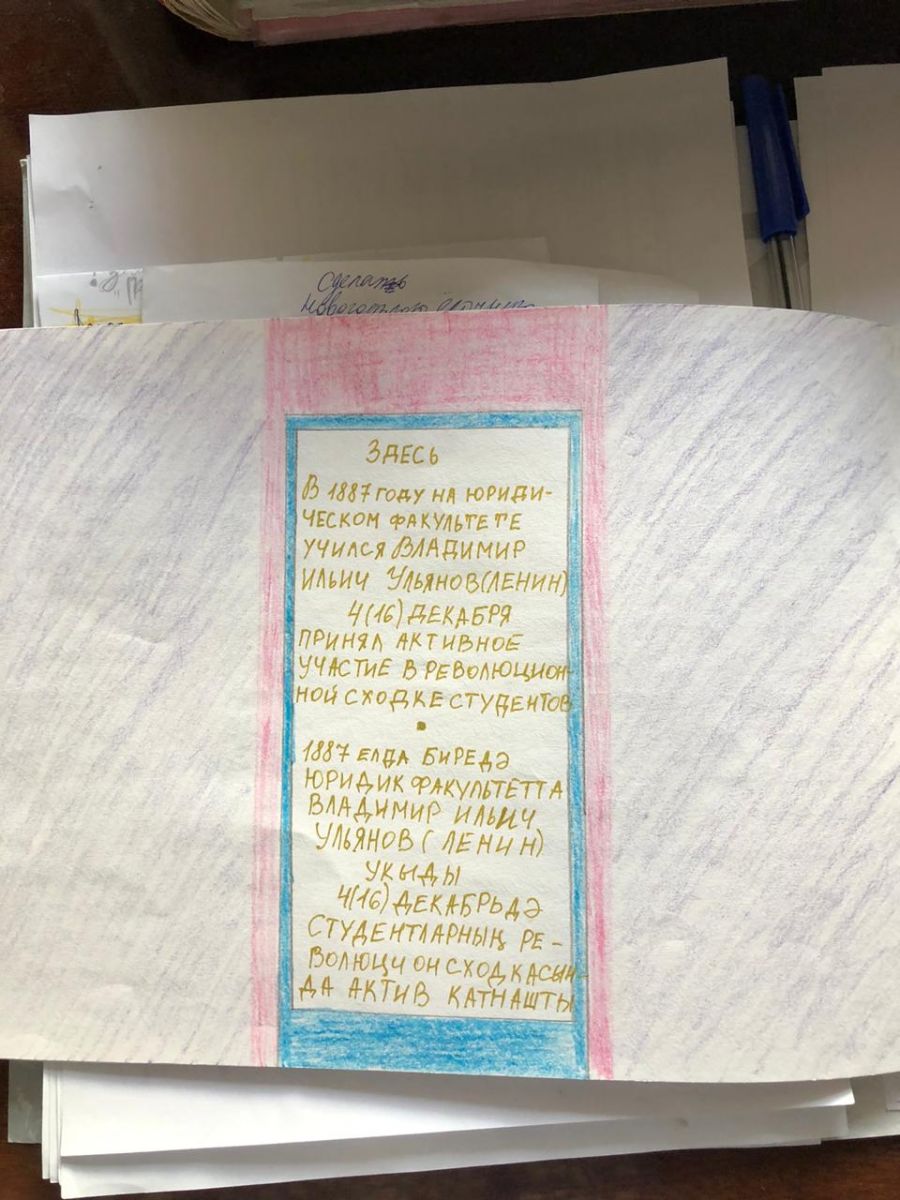 Сделать
новогоднюю
ЗДЕСЬ
В 1887 ГОДУ НА ЮРИДИ-
ЧЕСКОМ ФАКУЛЬТЕТЕ
УЧИЛСЯ ВЛАДИМИР
ИЛЬИЧ УЛЬЯНОВ(ЛЕНИН)
4(16) ДЕКАБРЯ
ПРИНЯЛ АКТИВНОЕ
УЧАСТИЕ В РЕВОЛЮЦИОН-
НОЙ СХОДКЕ СТУДЕНТОВ
1887 ЕЛДА БИРЕДӘ
ЮРИДИК ФАКУЛЬТЕТТА
ВЛАДИМИР ИЛЬИЧ
УЛЬЯНОВ (ЛЕНИН)
УКЫДЫ
4(16) ДЕКАБРЬДӘ
СТУДЕНТЛАРНЫҢ РЕ-
ВОЛЮЦИОН СХОДКАСЫН-
ДА АКТИВ КАТНАШТЫ